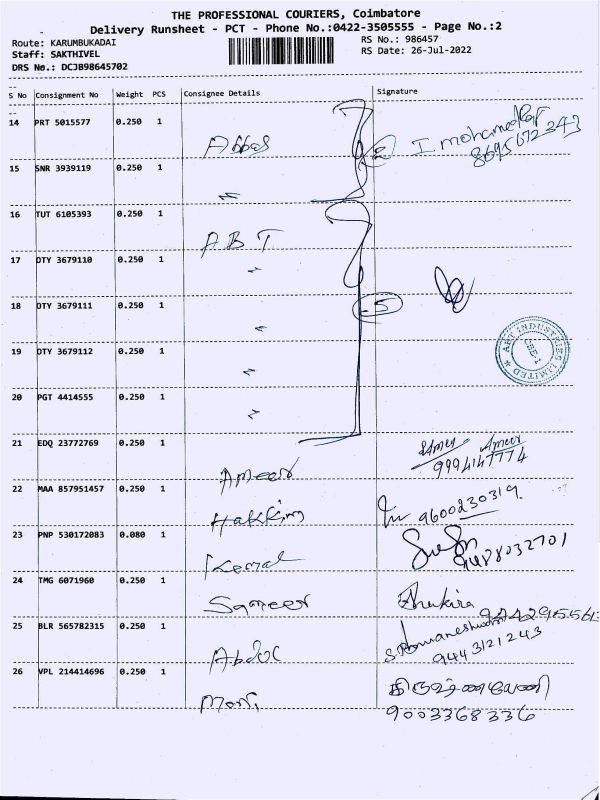 THE PROFESSIONAL COURIERS, Coimbatore
Delivery Runsheet - PCT - Phone No.:0422-3505555 - Page No.:2
Route: KARUMBUKADAI
RS No.: 986457
Staff: SAKTHIVEL
RS Date: 26-Jul-2022
DRS No.: DCJB98645702
S No Consignment No Weight PCS Consignee Details Signature
14 PRT 5015577 0.250 1 Abbas I. mohamed
8695672343
15 SNR 3939119 0.250 1 〃
16 TUT 6105393 0.250 1 ABT
17 DTY 3679110 0.250 1 〃
18 DTY 3679111 0.250 1 〃 5
19 DTY 3679112 0.250 1 〃
ABT INDUSTRIES LIMITED
CBE-1
20 PGT 4414555 0.250 1 〃
21 EDQ 23772769 0.250 1 Ameer Ameer
9994147774
22 MAA 857951457 0.250 1 Hakkim 9600230319
23 PNP 530172083 0.080 1 Kemal 9488032701
24 TMG 6071960 0.250 1 Sameer
25 BLR 565782315 0.250 1 Abdul S. Bhuvaneshwari
9443121243
26 VPL 214414696 0.250 1 Mani
9003368336